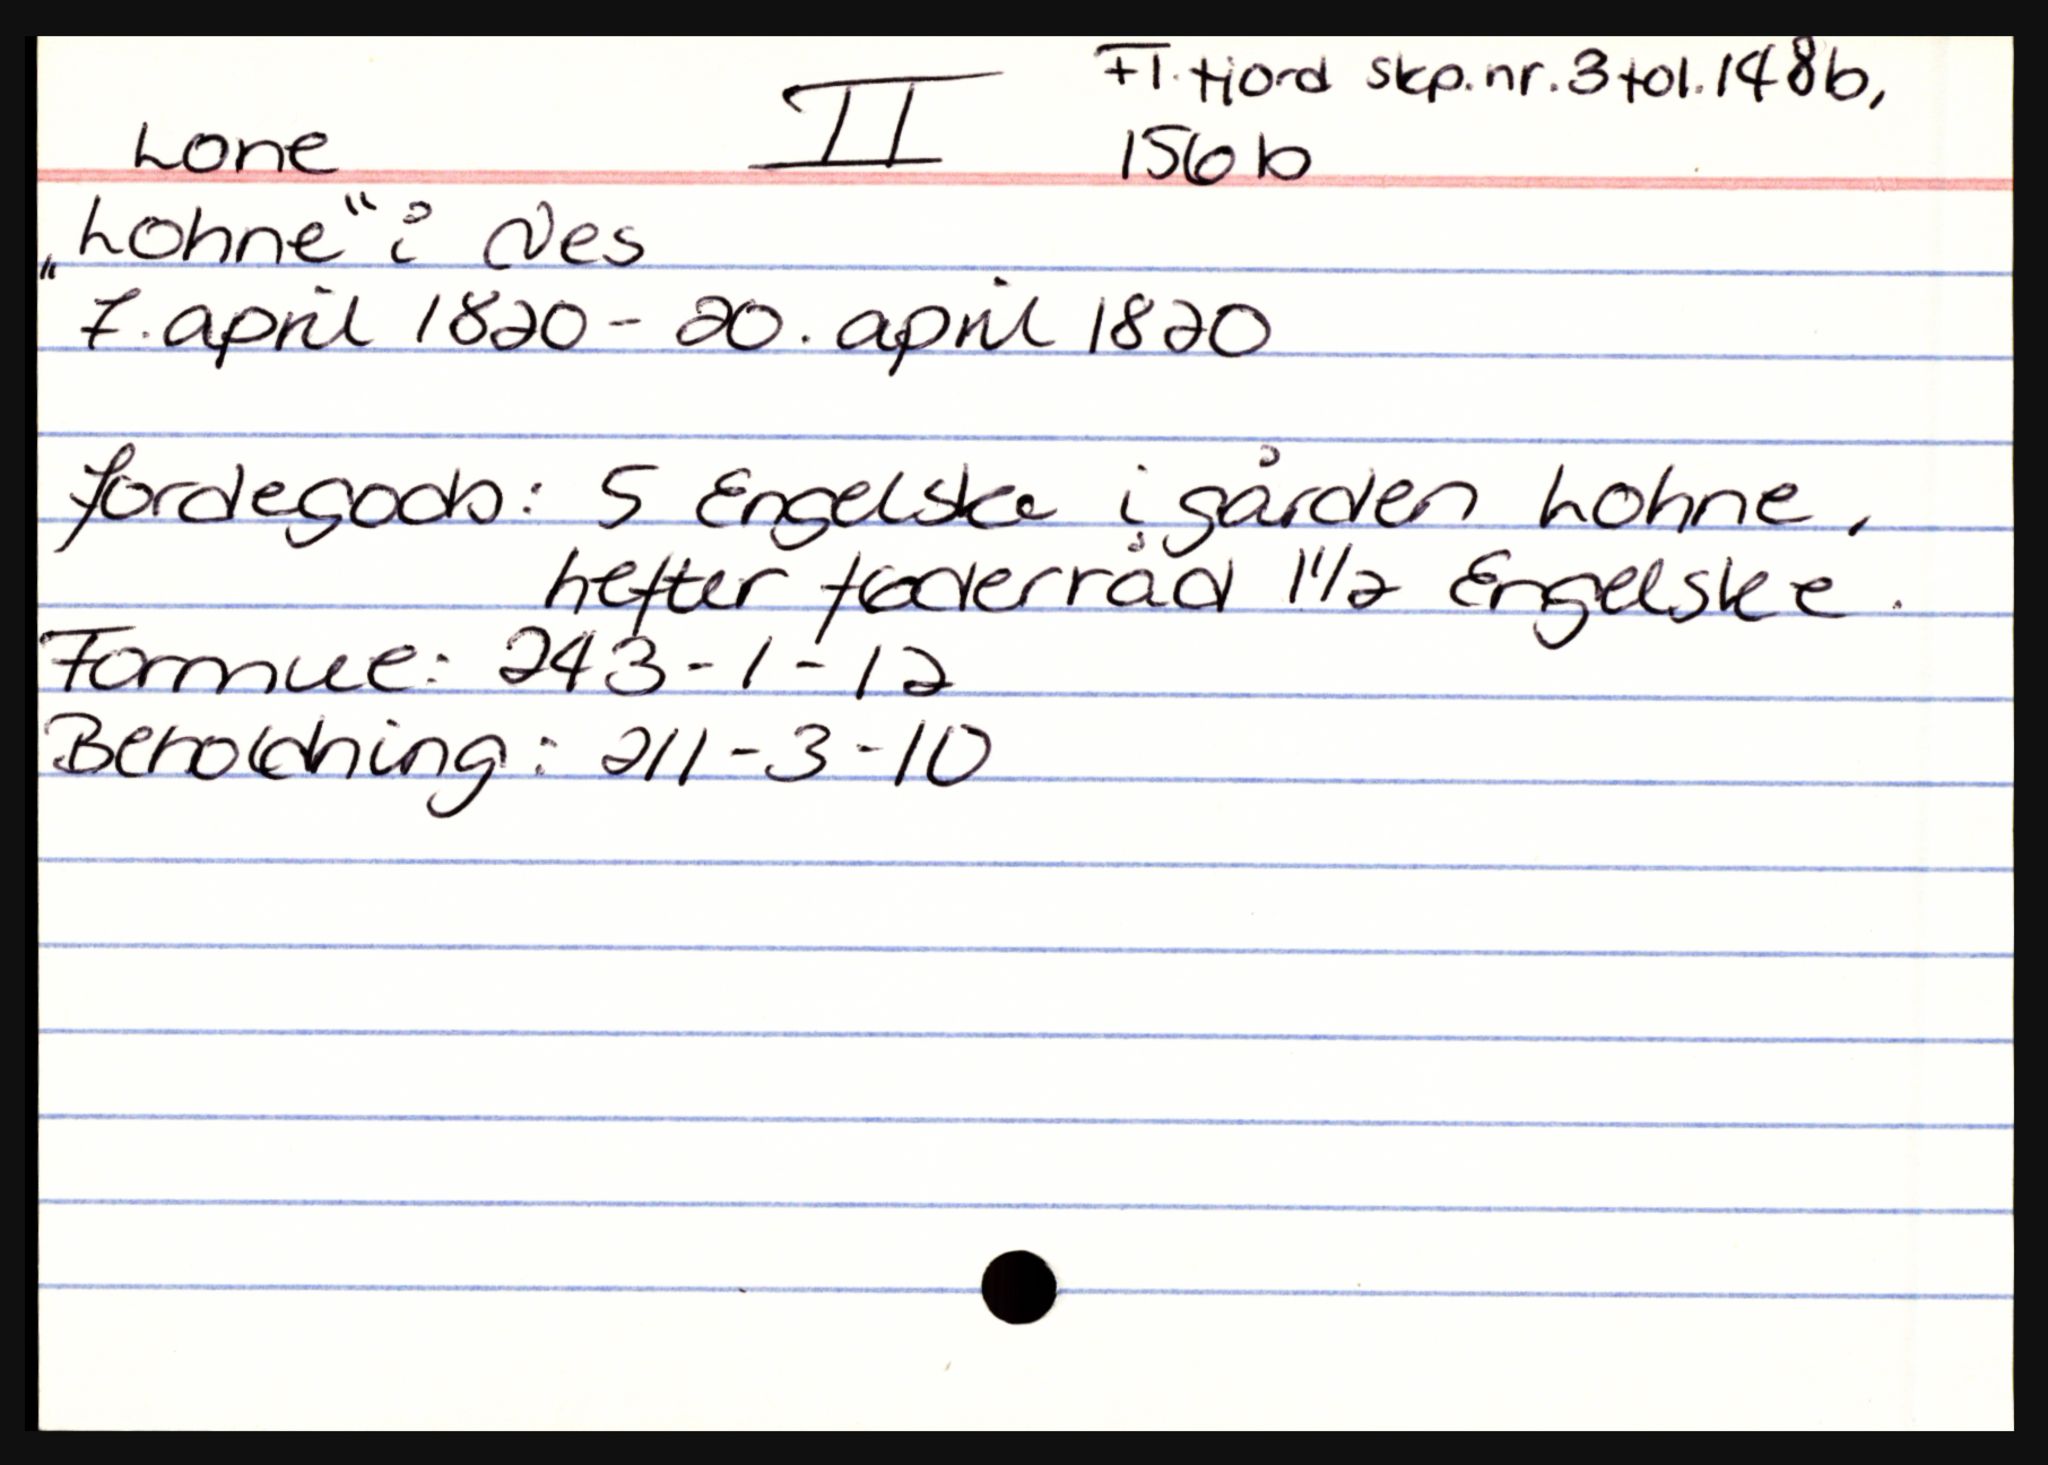 Lone II Fl.fjord skp.nr.3 fol.148b,
156b
„Lohne“ i Nes
7. april 1820 - 20. april 1820
Jordegods: 5 Engelske i gården Lohne,
hefter føderråd 1 1/2 Engelske.
Formue: 243-1-12
Beholdning: 211-3-10